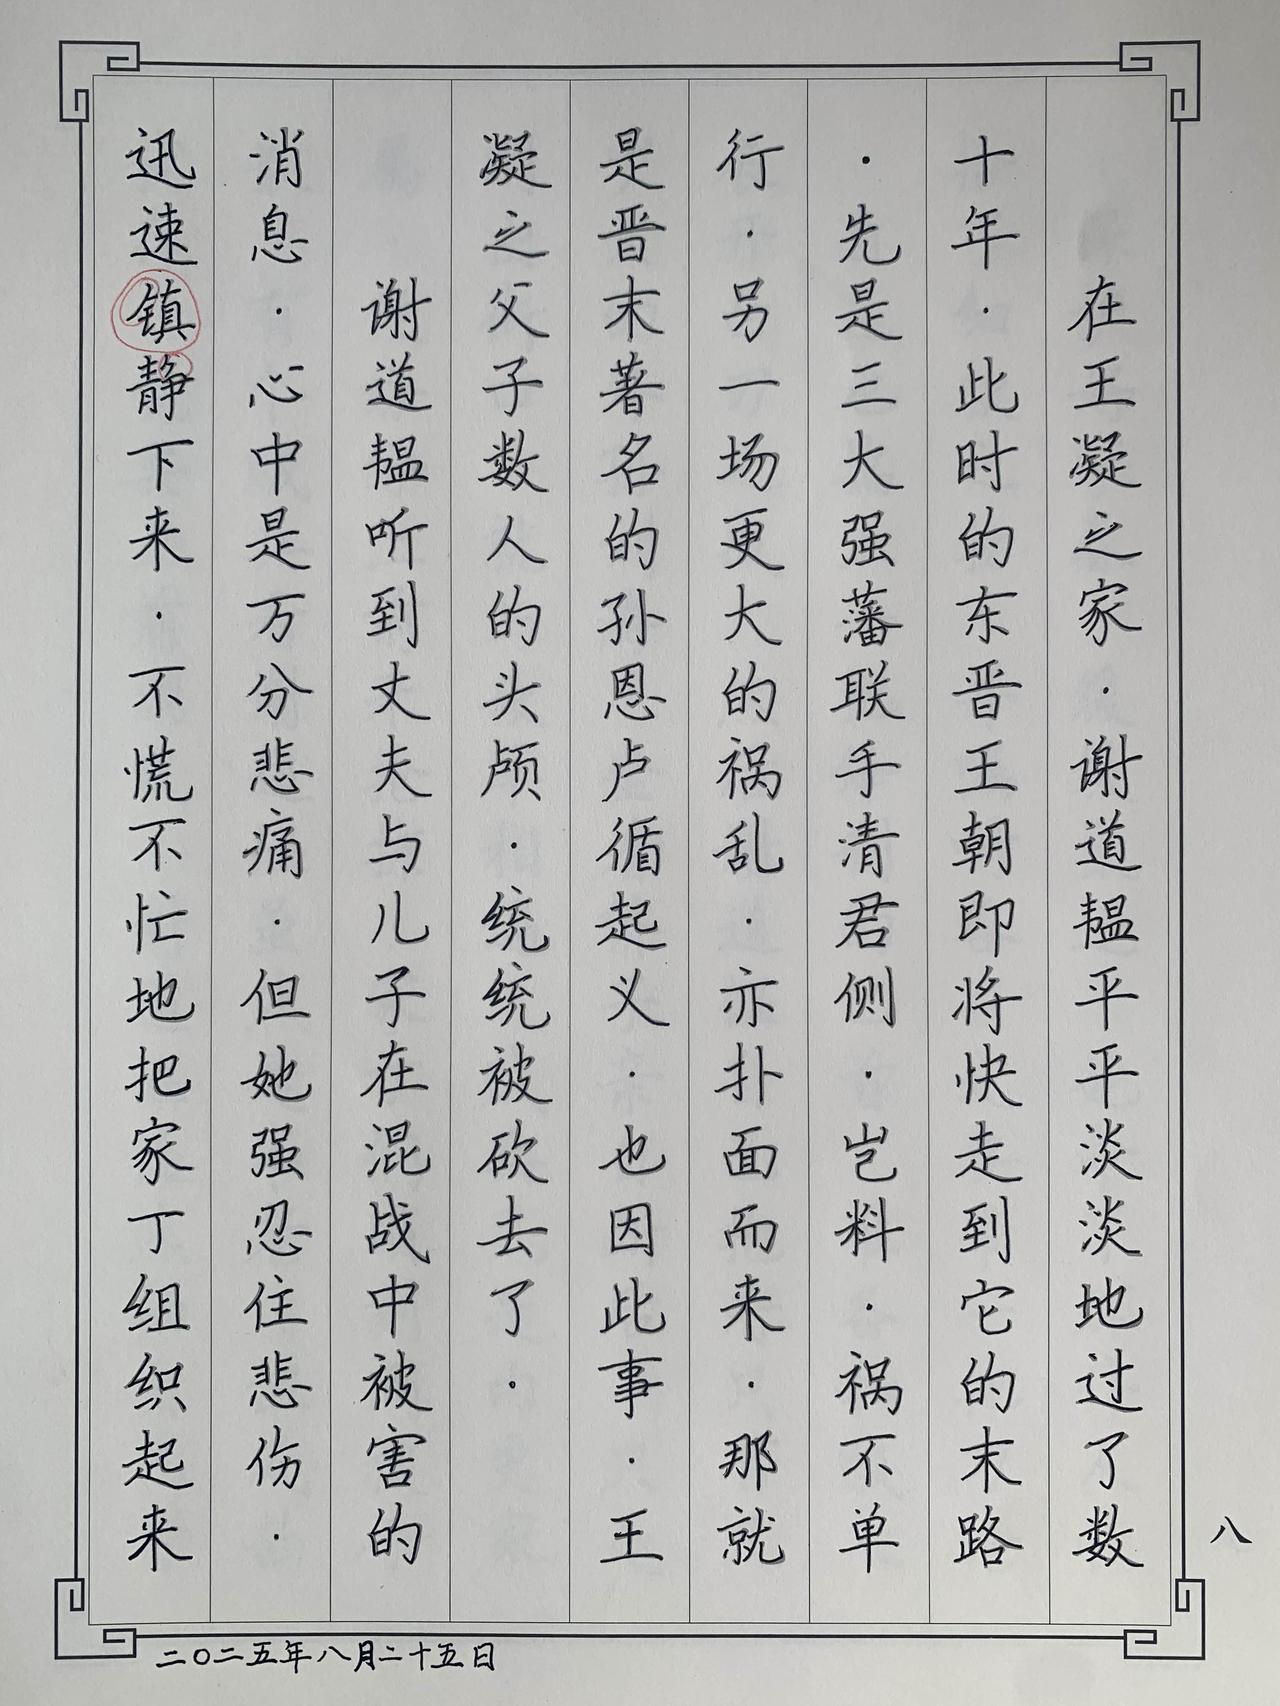 在王凝之家·谢道韫平平淡淡地过了数
十年·此时的东晋王朝即将快走到它的末路
·先是三大强藩联手清君侧·岂料·祸不单
行·另一场更大的祸乱·亦扑面而来·那就
是晋末著名的孙恩卢循起义·也因此事·王
凝之父子数人的头颅·统统被砍去了·
谢道韫听到丈夫与儿子在混战中被害的
消息·心中是万分悲痛·但她强忍住悲伤·
迅速镇静下来·不慌不忙地把家丁组织起来
八
二〇二五年八月二十五日